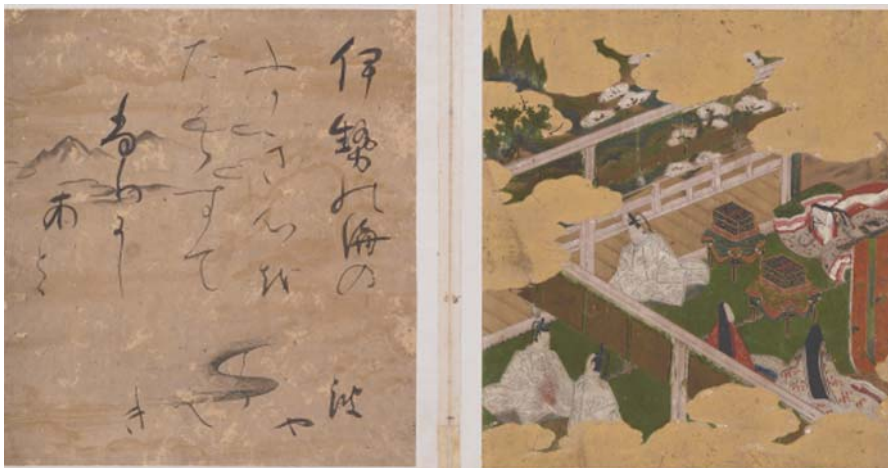 伊勢能海の
ふかき心越
たとらすて
ふりにし
波
や
き